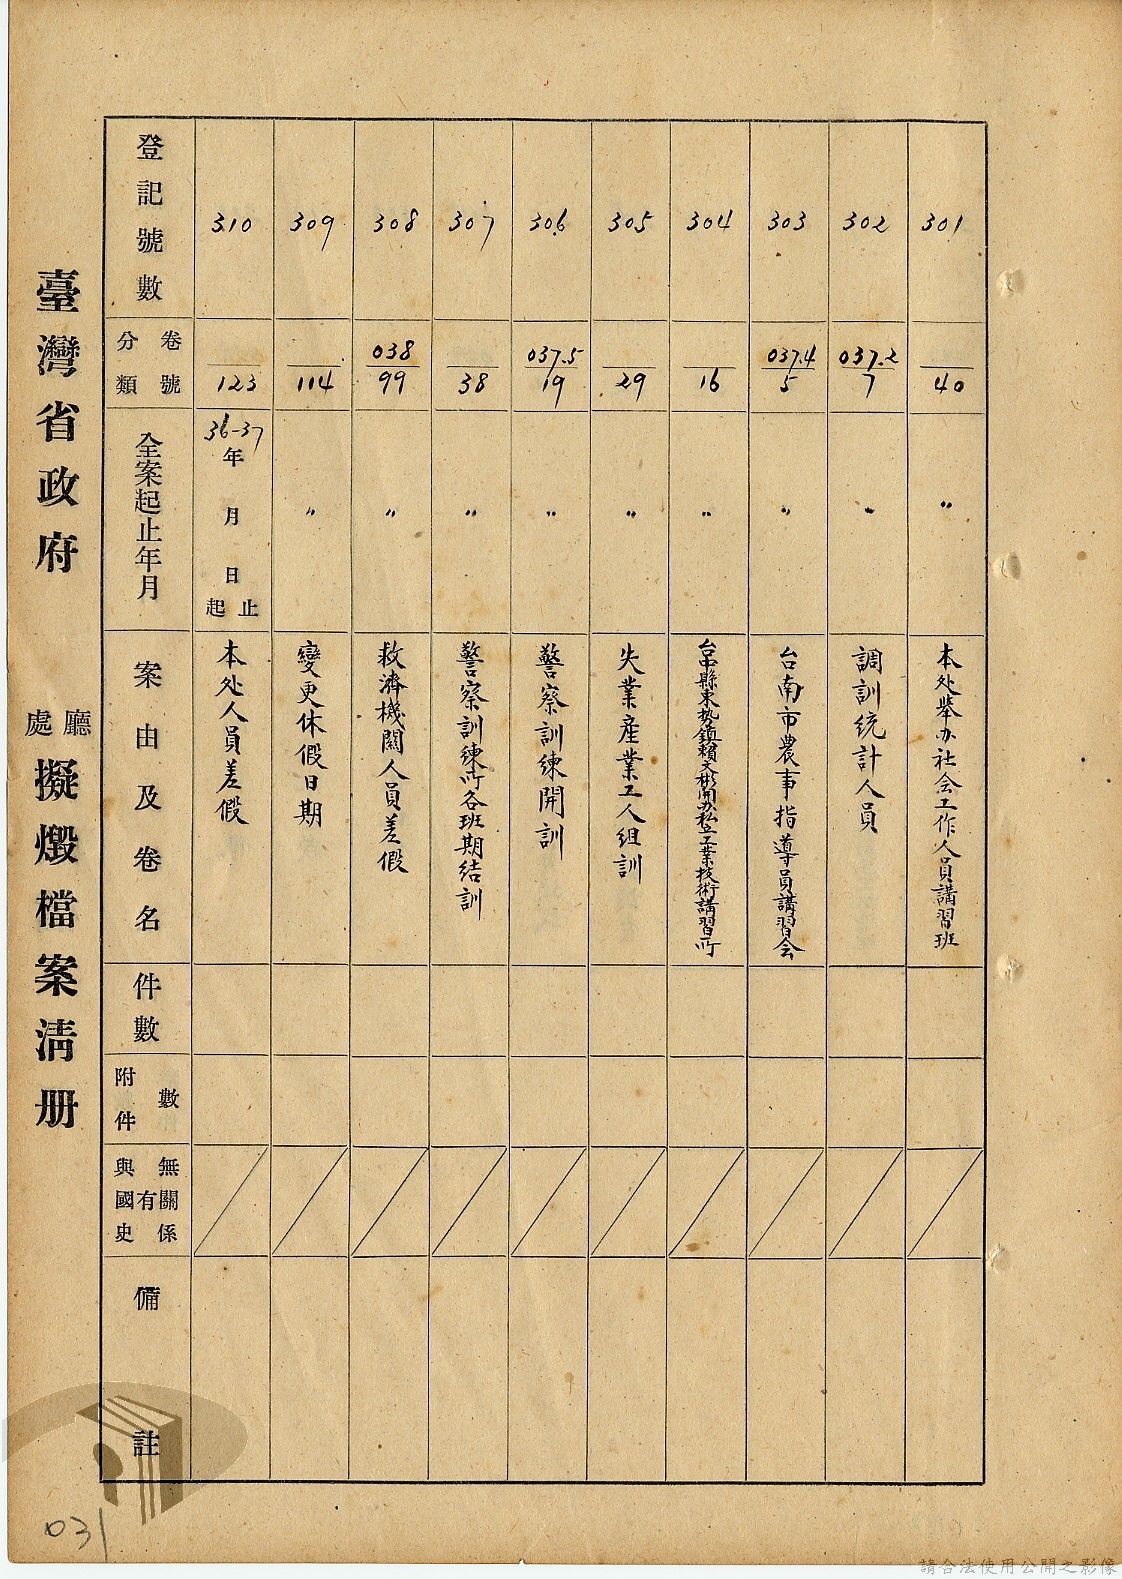 臺灣省政府 處廳 擬燬檔案清册
登記號數
310
309
308
307
306
305
304
303
302
301
分類 卷號
123
114
038
99
38
037.5
19
29
16
037.4
5
037.2
7
40
全案起止年月
36-37年 月 日 起止
〃
〃
〃
〃
〃
〃
〃
〃
〃
案由及卷名
本处人員差假
變更休假日期
救濟機關人員差假
警察訓練所各班期結訓
警察訓練開訓
失業產業工人組訓
台中縣東勢鎮賴文彬開办私立工業技術講習所
台南市農事指導員講習会
調訓統計人員
本处舉办社会工作人員講習班
件數
附件 數
與國史 有 無關係
備註
031
請合法使用公開之影像